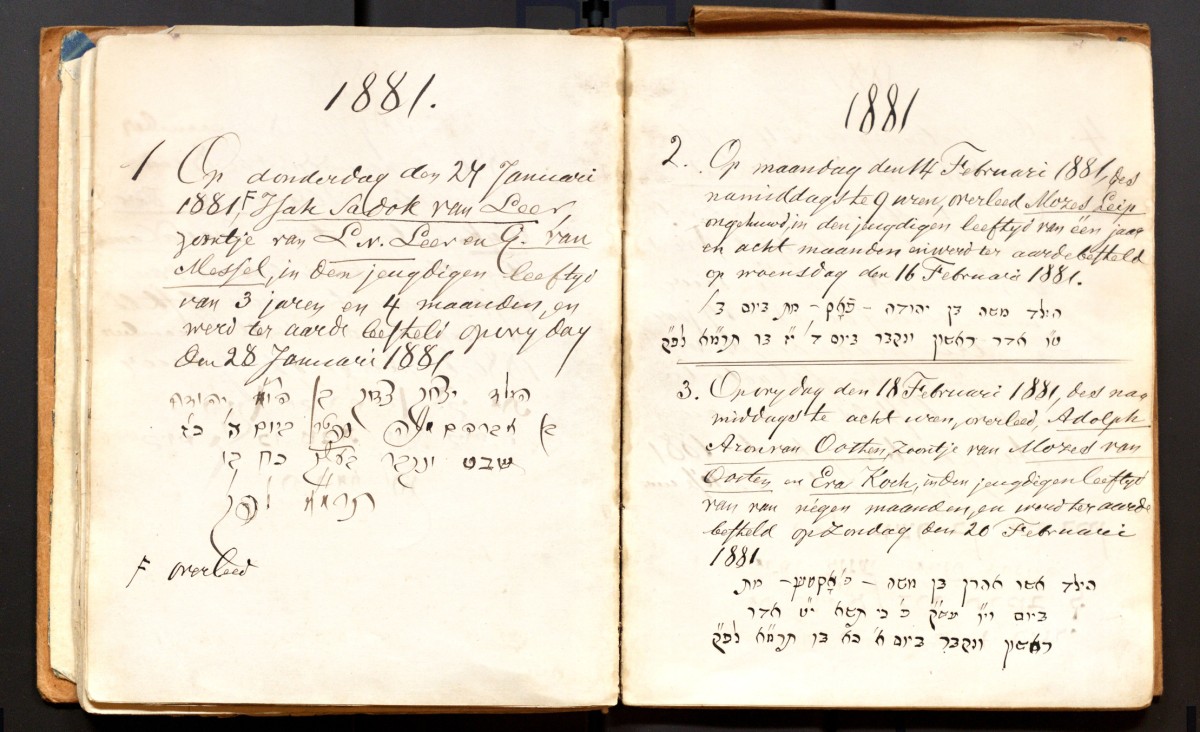 1881.
1 Op donderdag den 27 Januari
1881, F Isak Sadok van Leer,
zoontje van L. v. Leer en G. van
Messel, in den jeugdigen leeftijd
van 3 jaren en 4 maanden, en
werd ter aarde besteld op vrydag
den 28 Januari 1881
הילד יצחק צדוק בן יהודה
בן אברהם ביום ה' כז
שבט ונקבר כח בו
תרמ"א לפ"ק
F overleed
1881
2. Op maandag den 14 Februari 1881, des
namiddags te 9 uren, overleed Mozes Leip
ongehuwd, in den jeugdigen leeftyd van één jaar
en acht maanden en werd ter aarde besteld
op woensdag den 16 Februari 1881.
הילד משה בן יהודה – – מת ביום ב'
ט"ו אדר ראשון ונקבר ביום ד' י"ז בו תרמ"א לפ"ק
3. Op vrydag den 18 Februari 1881, des na
middags te acht uren, overleed, Adolph
Aron van Oosten, zoontje van Mozes van
Oosten en Eva Koch, in den jeugdigen leeftyd
van van négen maanden, en werd ter aarde
besteld op Zondag den 20 Februari
1881
הילד אשר אהרן בן משה – – מת
ביום ויו עש"ק פ' כי תשא י"ט אדר
ראשון ונקבר ביום א' כ"א בו תרמ"א לפ"ק